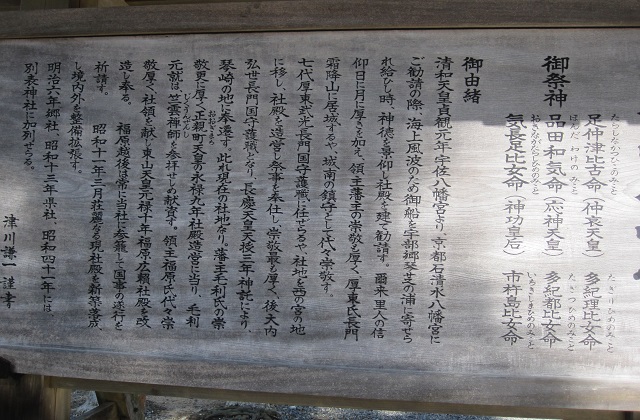 御祭神
たらしなかつひこのみこと
足仲津比古命（仲哀天皇）
ほんだわけのみこと
品田和気命（応神天皇）
おきながたらしひめのみこと
気長足比女命（神功皇后）
たぎりひめのみこと
多紀理比女命
たぎつひめのみこと
多紀都比女命
いちきしまひめのみこと
市杵島比女命
御由緒
清和天皇貞観元年宇佐八幡宮より、京都石清水八幡宮に
ご勧請の際、海上風波のため御船を宇部郷琴芝の浦に寄せら
れ給ひし時、神徳を景仰し社殿を建て勧請す。爾来里人の信
仰日に月に厚きを加え、領主藩主の崇敬も厚く、厚東氏長門
霜降山に居城するや、城南の鎮守として代々崇敬す。
七代厚東武光長門国守護職に任ぜらるや、社地を西の宮の地
に移し、社殿を造営し祭事を奉仕し、崇敬最も厚く、後大内
弘世長門国守護職となり、長慶天皇天授三年神託により、
琴崎の地に奉遷す。此れ現在の社地なり。藩主毛利氏の崇
敬更に厚く正親町天皇の永禄九年社殿造営に当り、毛利
おおぎまち
元就は竺雲禅師を参拝せしめ献資す。領主福原氏代々崇
じくうんぜんじ
敬厚く、社領を献じ東山天皇元禄十年福原広頼社殿を改
造し奉る。福原越後は常に当社に参籠して国事の遂行を
祈請す。昭和十一年三月荘麗なる現社殿を新築落成
し境内外を整備拡張す。
明治六年郷社、昭和十三年県社、昭和四十一年には
別表神社に加列せらる。
津川謙一謹書